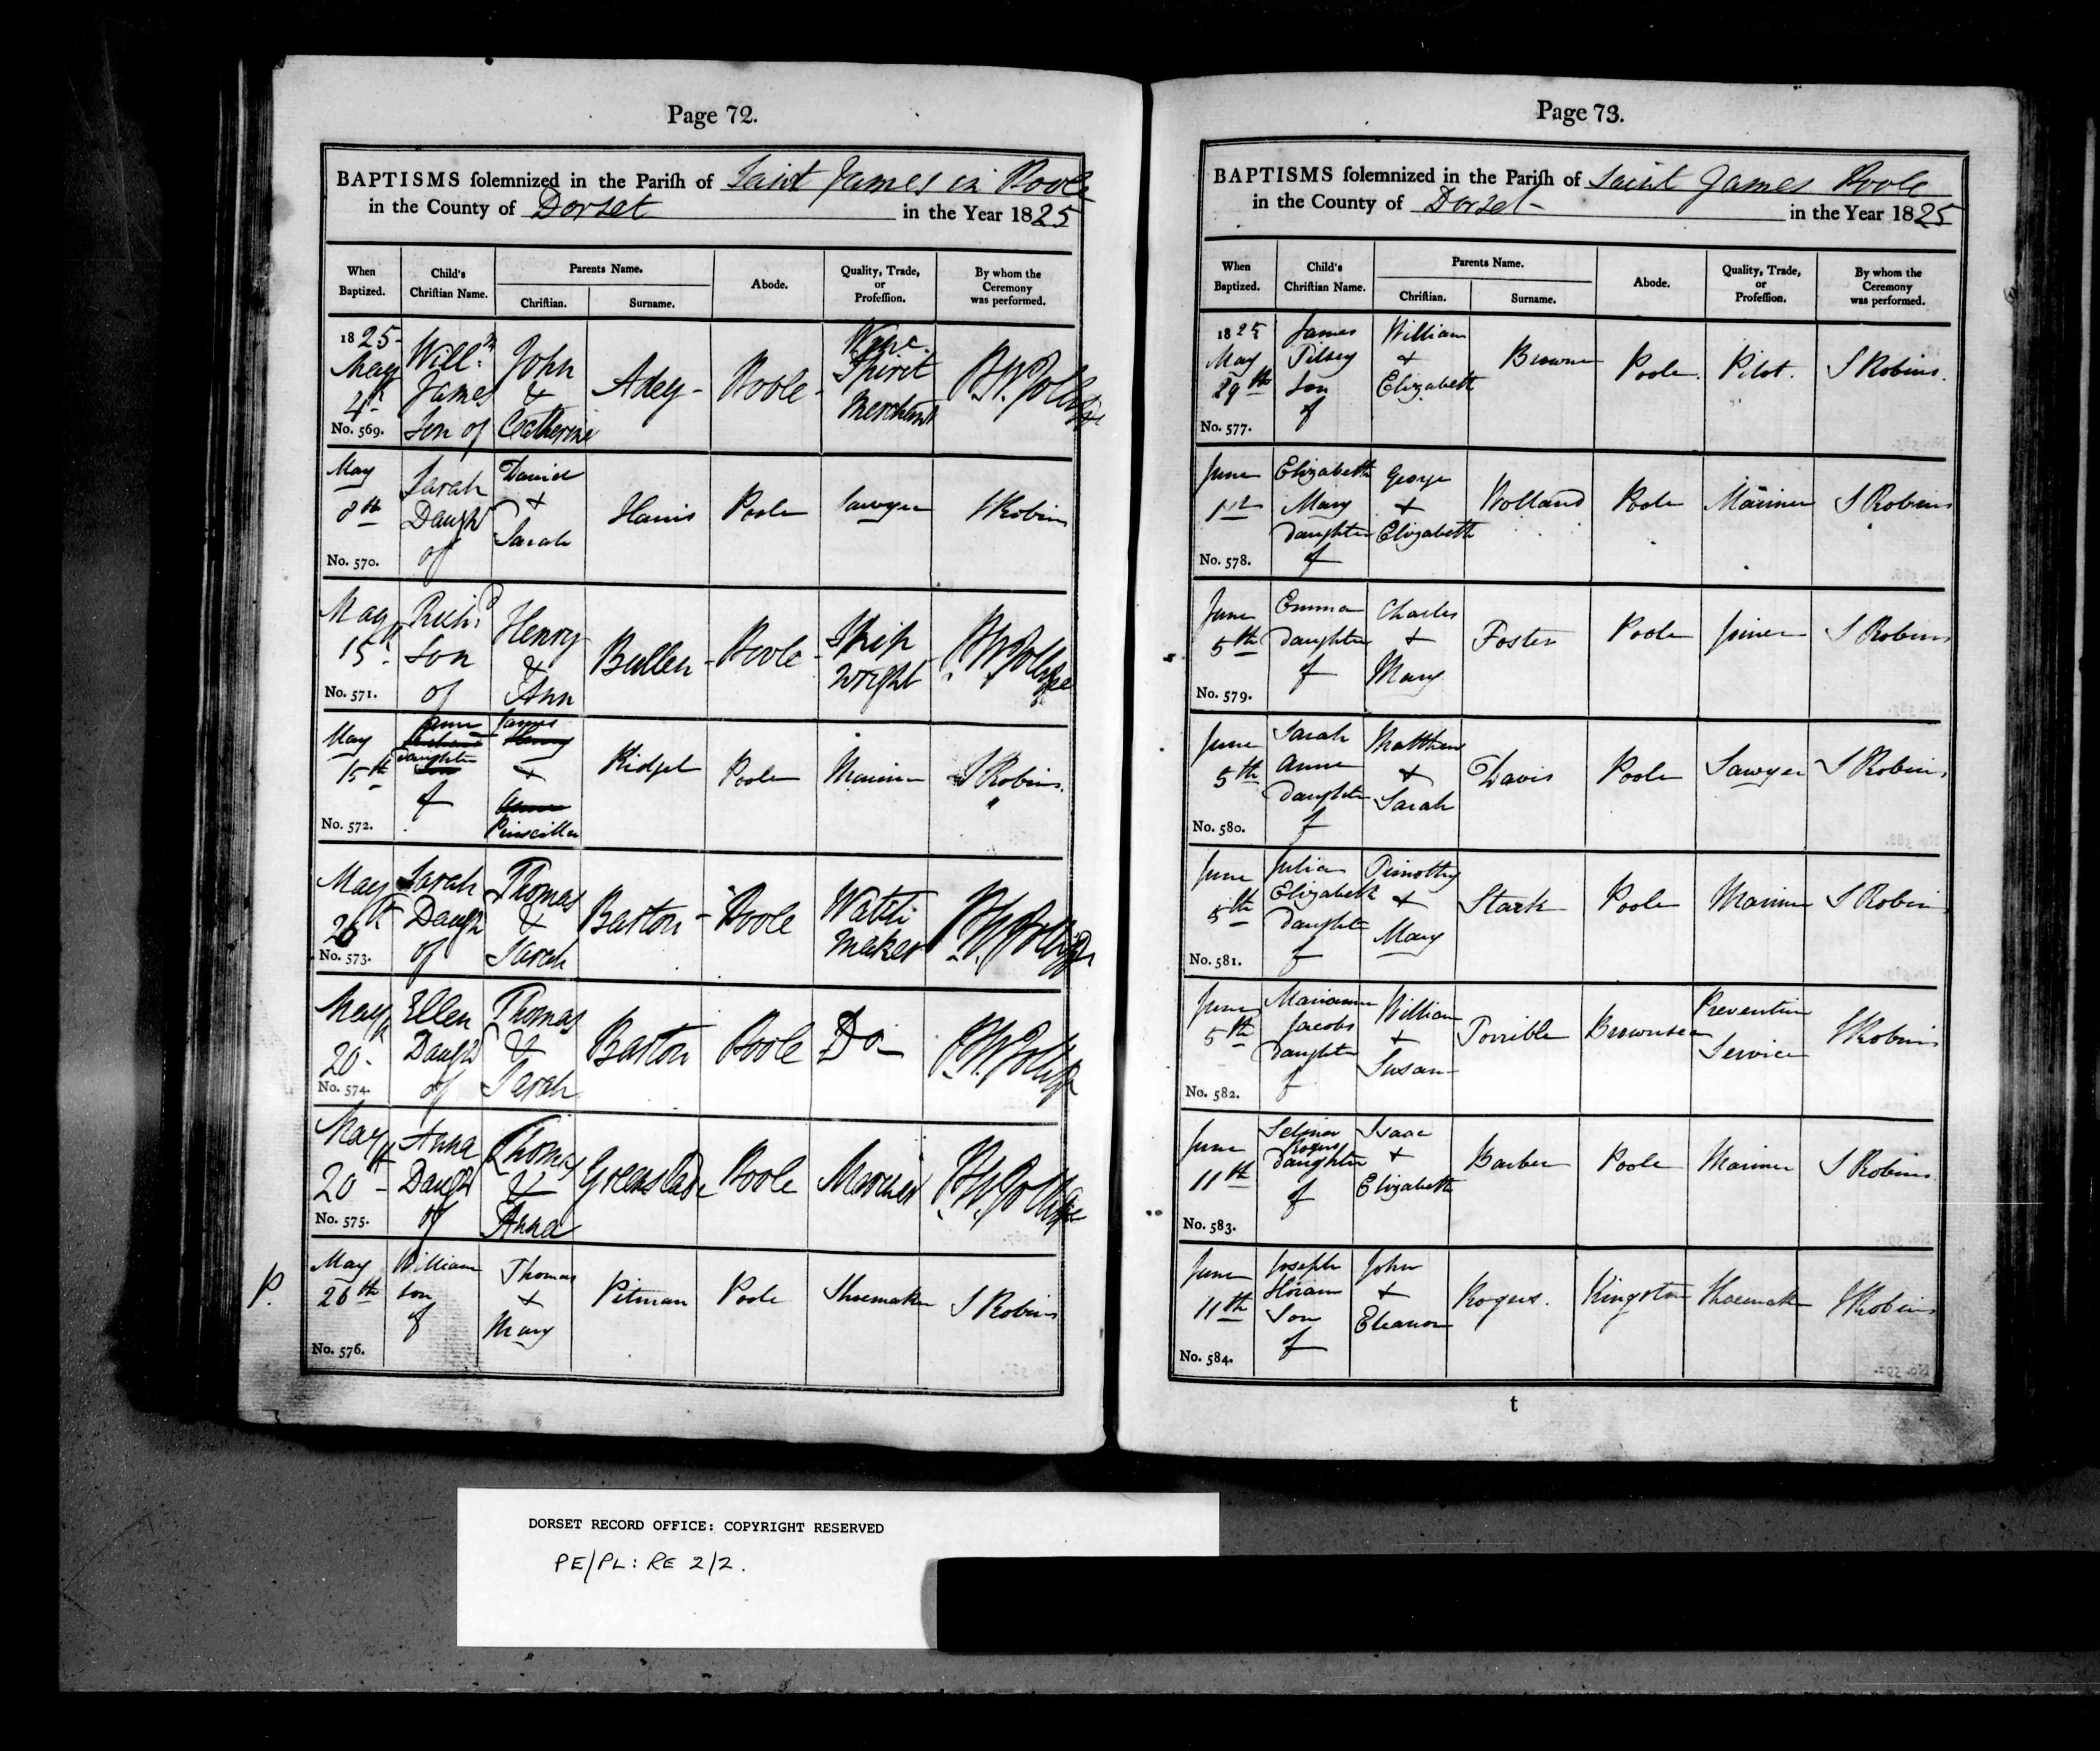 Page 72.
BAPTISMS solemnized in the Parish of Saint James in Poole
in the County of Dorset in the Year 1825
When Baptized. Child's Christian Name. Parents Name. Christian. Surname. Abode. Quality, Trade, or Profession. By whom the Ceremony was performed.
1825- May 4th No. 569. Willm James Son of John & Catherine Adey - Poole - Wine Spirit Merchant
May 8th No. 570. Sarah Daughr of David + Sarah Harris Poole Sawyer S Robins
May 15th No. 571. Richd Son of Henry & Ann Bullen - Poole - Ship wright
May 15th No. 572. Daughter of James + Priscilla Poole Mariner S Robins.
May 20th No. 573. Sarah Daugr of Thomas & Sarah Barton - Poole Watch maker
May 20th No. 574. Ellen Daugr of Thomas & Sarah Barton Poole Do -
May 20th - No. 575. Anna Daugr of Thomas & Anna Greenslade Poole Mariner
P. May 26th No. 576. William son of Thomas + Mary Pitman Poole Shoemaker S Robins
Page 73.
BAPTISMS solemnized in the Parish of Saint James Poole
in the County of Dorset in the Year 1825
When Baptized. Child's Christian Name. Parents Name. Christian. Surname. Abode. Quality, Trade, or Profession. By whom the Ceremony was performed.
1825 May 29th No. 577. James Pilsey son of William + Elizabeth Brown Poole. Pilot. S Robins.
June 1st No. 578. Elizabeth Mary daughter of George + Elizabeth Poole Mariner S Robins
June 5th No. 579. Emma daughter of Charles + Mary Foster Poole Joiner S Robins
June 5th No. 580. Sarah Anne Daughter of Matthew + Sarah Davis Poole Sawyer S Robins
June 5th No. 581. Julia Elizabeth Daughter of Timothy + Mary Stark Poole Mariner S Robins
June 5th No. 582. Marianne Jacobs Daughter of William + Susan Brownsea Preventive Service S Robins
June 11th No. 583. Selina Rogers Daughter of Isaac + Elizabeth Barber Poole Mariner S Robins
June 11th No. 584. Joseph Hiram Son of John + Eleanor Rogers. Kingston Shoemaker S Robins
t
DORSET RECORD OFFICE: COPYRIGHT RESERVED
PE/PL: RE 2/2.